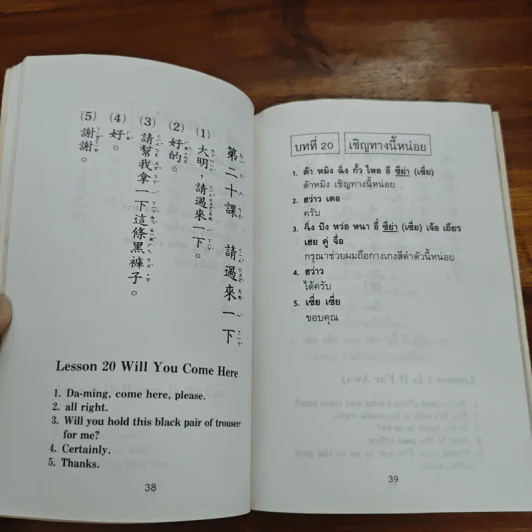 第二十課　請過來一下
(1) 大明，請過來一下。
(2) 好的。
(3) 請幫我拿一下這條黑褲子。
(4) 好。
(5) 謝謝。
Lesson 20 Will You Come Here
1. Da-ming, come here, please.
2. all right.
3. Will you hold this black pair of trouser
for me?
4. Certainly.
5. Thanks.
38
บทที่ 20 เชิญทางนี้หน่อย
1. ต้า หมิง ฉิ่ง กั้ว ไหล อี๋ ซีย่า (เซี่ย)
ต้าหมิง เชิญทางนี้หน่อย
2. ฮว่าว เตอ
ครับ
3. ฉิ่ง ปัง หว่อ หนา อี๋ ซีย่า (เซี่ย) เจ้อ เถียว
เฮย คู่ จื่อ
กรุณาช่วยผมถือกางเกงสีดำตัวนี้หน่อย
4. ฮว่าว
ได้ครับ
5. เซี่ย เซี่ย
ขอบคุณ
39